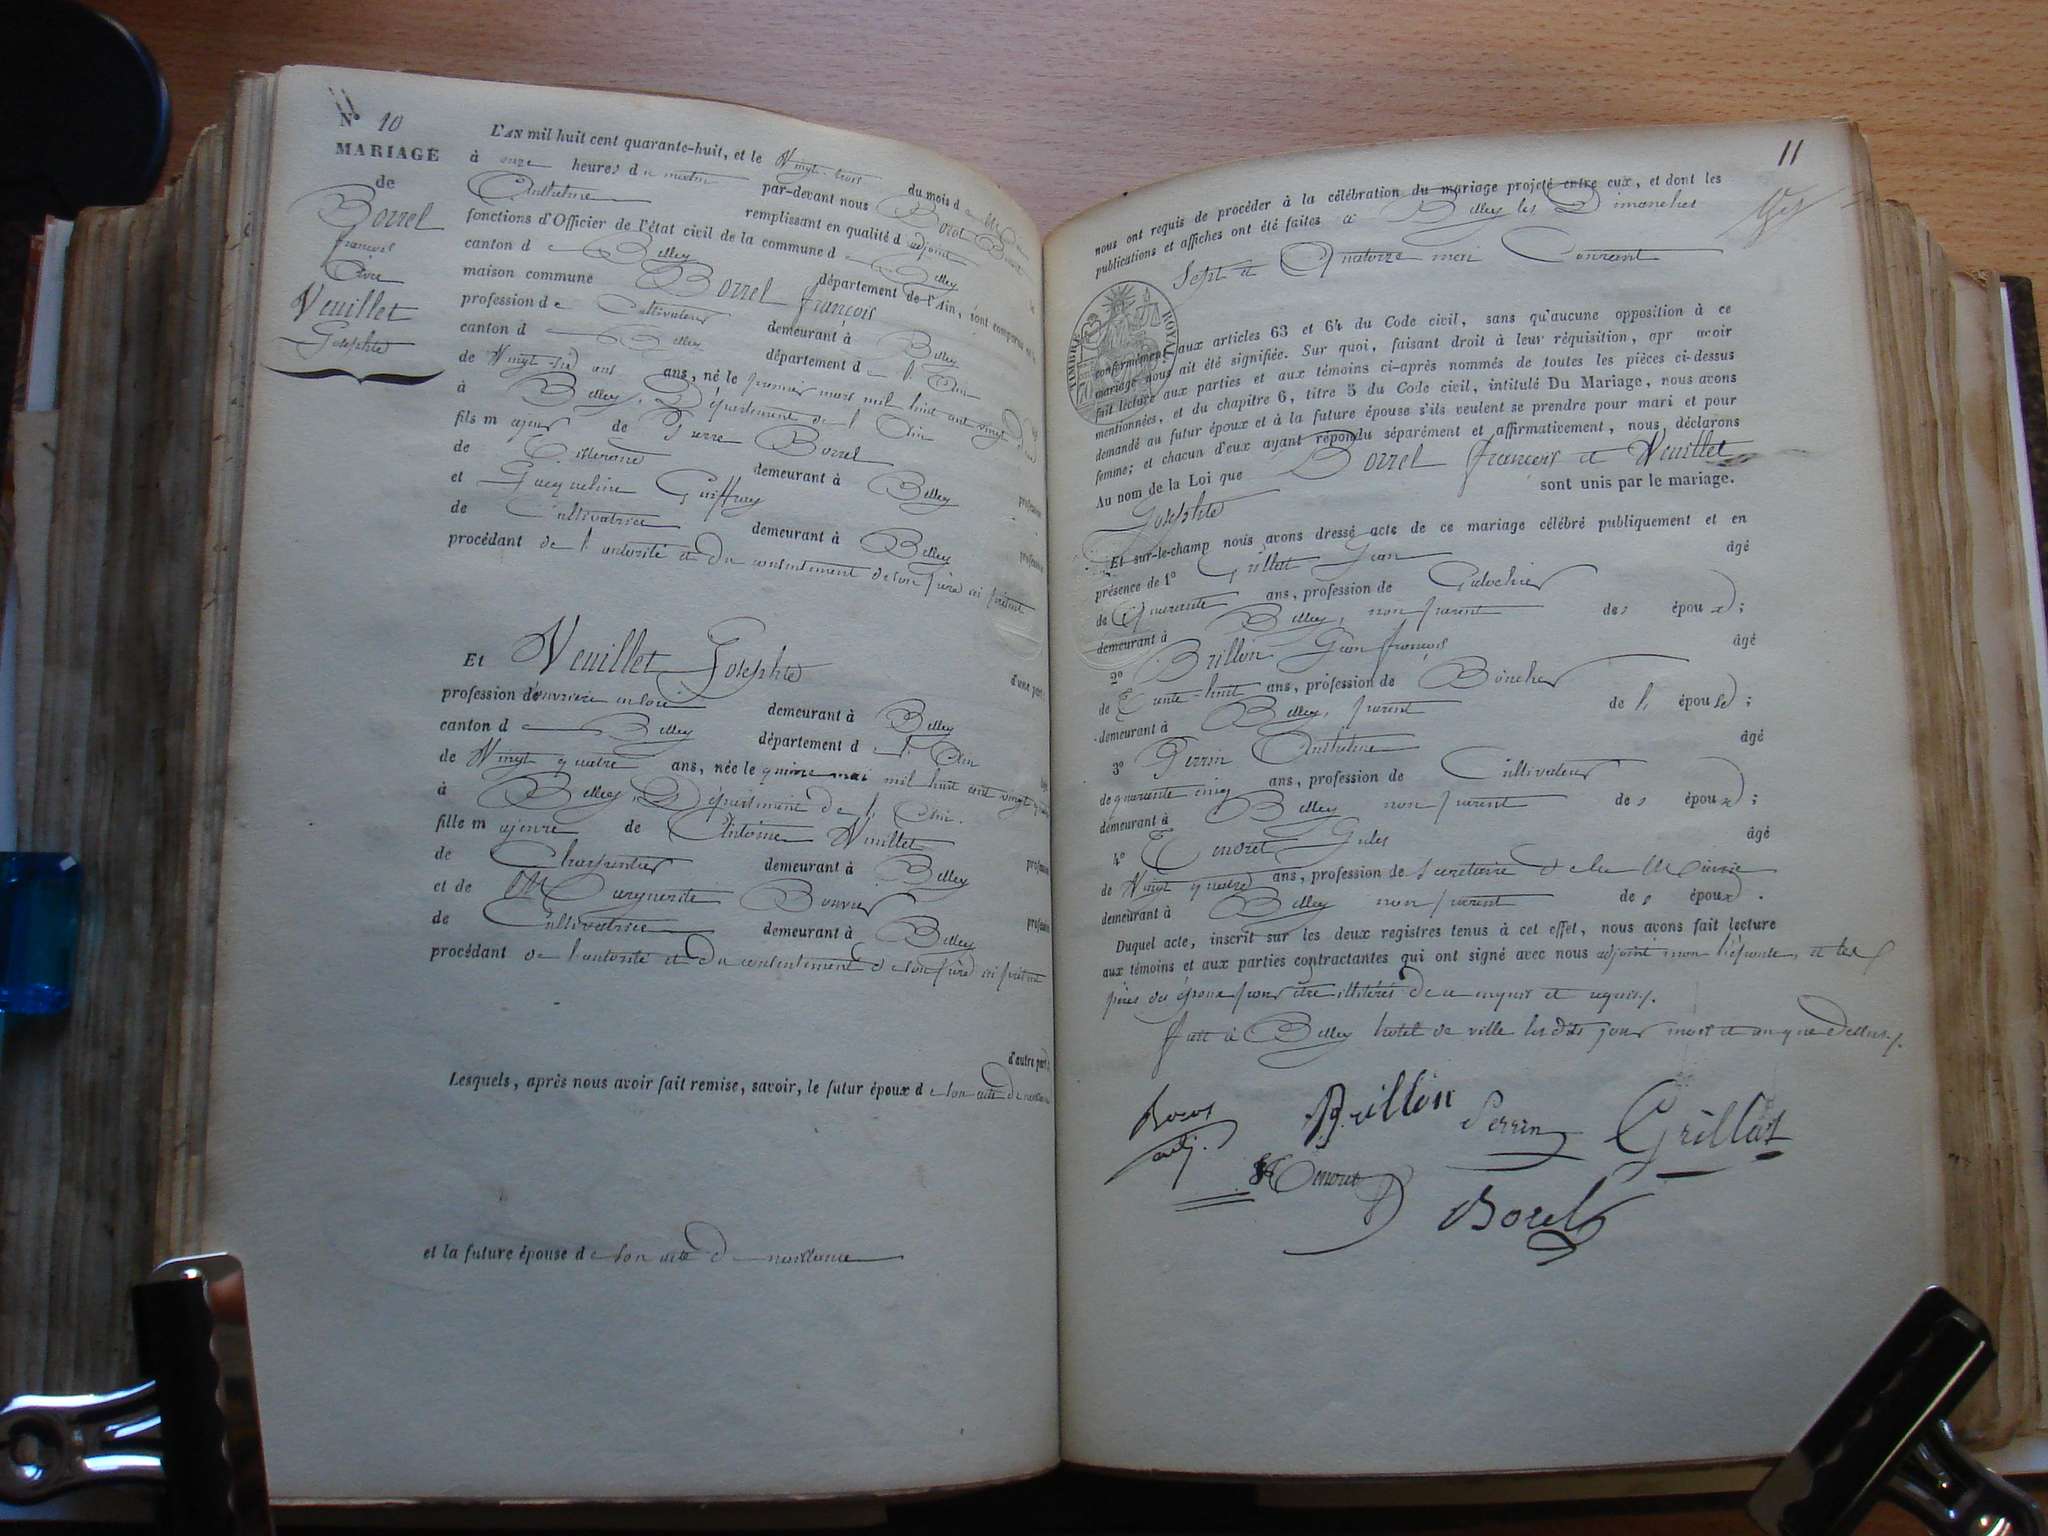 N° 10
MARIAGE
de
Borrel
françois
Avec
Veuillet
Josephte
L'AN mil huit cent quarante-huit, et le Vingt-trois du mois de Mai
à onze heures du matin par-devant nous Borot
Anthelme remplissant en qualité d'adjoint
fonctions d'Officier de l'état civil de la commune de Belley
canton de Belley département de l'Ain, sont comparus
maison commune Borrel françois
profession de Cultivateur demeurant à Belley
canton de Belley département de l'Ain
de Vingt-six ans, ans, né le premier mars mil huit cent vingt
à Belley, Département de l'Ain
fils majeur de Pierre Borrel
de demeurant à Belley profession
et Jacqueline Guiffray
de Cultivatrice demeurant à Belley profession
procédant de l'autorité et du consentement de son père ici présent
d'une part ;
Et Veuillet Josephte
profession d'ouvrière en soie demeurant à Belley
canton de Belley département de l'Ain
de Vingt quatre ans, née le quinze mai mil huit cent vingt quatre
à Belley, Département de l'Ain.
fille majeure de Antoine Veuillet
de Charpentier demeurant à Belley profession
et de Marguerite Bouvier
de Cultivatrice demeurant à Belley profession
procédant de l'autorité et du consentement de son père ici présent
d'autre part ;
Lesquels, après nous avoir fait remise, savoir, le futur époux de son acte de naissance
et la future épouse de son acte de naissance
11
nous ont requis de procéder à la célébration du mariage projeté entre eux, et dont les
publications et affiches ont été faites à Belley les Dimanches
Sept et Quatorze mai Courant
TIMBRE ROYAL
conformément aux articles 63 et 64 du Code civil, sans qu'aucune opposition à ce
mariage nous ait été signifiée. Sur quoi, faisant droit à leur réquisition, apr avoir
fait lecture aux parties et aux témoins ci-après nommés de toutes les pièces ci-dessus
mentionnées, et du chapitre 6, titre 5 du Code civil, intitulé Du Mariage, nous avons
demandé au futur époux et à la future épouse s'ils veulent se prendre pour mari et pour
femme; et chacun d'eux ayant répondu séparément et affirmativement, nous déclarons
Au nom de la Loi que Borrel françois et Veuillet
Josephte sont unis par le mariage.
Et sur-le-champ nous avons dressé acte de ce mariage célébré publiquement et en
présence de 1° Grillat Jean âgé
de Quarante ans, profession de Galochier
demeurant à Belley, non parent des époux ;
2° Brillon Jean françois âgé
de Trente-huit ans, profession de Boucher
demeurant à Belley, parent de l'épouse ;
3° Perrin Anthelme âgé
de quarante cinq ans, profession de Cultivateur
demeurant à Belley non parent des époux ;
4° Tenoret Jules âgé
de Vingt quatre ans, profession de Secretaire de la Mairie
demeurant à Belley non parent des époux .
Duquel acte, inscrit sur les deux registres tenus à cet effet, nous avons fait lecture
aux témoins et aux parties contractantes qui ont signé avec nous adjoint non l'épouse, et les
pères des époux pour être illitérés de ce enquis et requis.
fait à Belley hotel de ville les dits jour mois et an que dessus.
Borot
adj.
Brillon
Perrin
Grillat
Tenoret
Borel